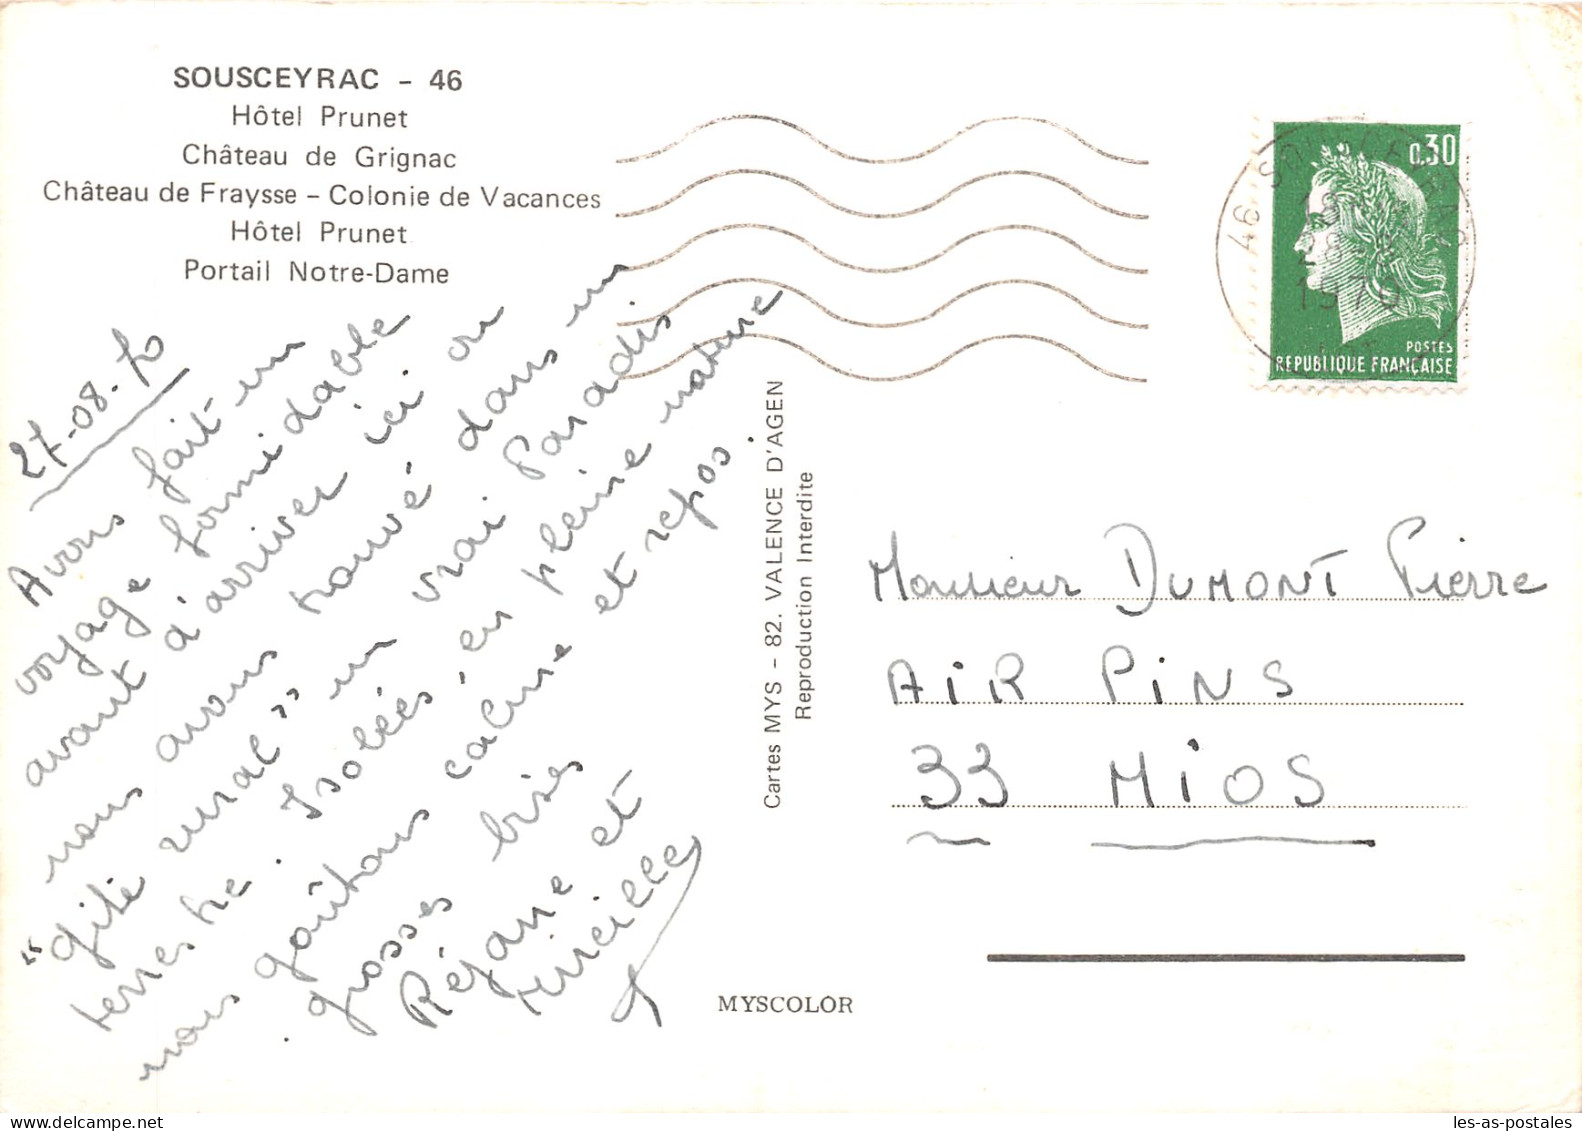 SOUSCEYRAC - 46
Hôtel Prunet
Château de Grignac
Château de Fraysse - Colonie de Vacances
Hôtel Prunet
Portail Notre-Dame
27-08-70
Avons fait un
voyage formidable
avant d'arriver ici où
nous avons trouvé dans un
"gîte rural" un vrai Paradis
terrestre. Isolées, en pleine nature
nous goûtons calme et repos.
grosses bises
Réjane et
Mireille
Cartes MYS - 82. VALENCE D'AGEN
Reproduction Interdite
MYSCOLOR
46 SOUSCEYRAC
28-8
1970
0,30
POSTES
REPUBLIQUE FRANÇAISE
Monsieur DUMONT Pierre
AiR PiNS
33 MiOS
les-as-postales